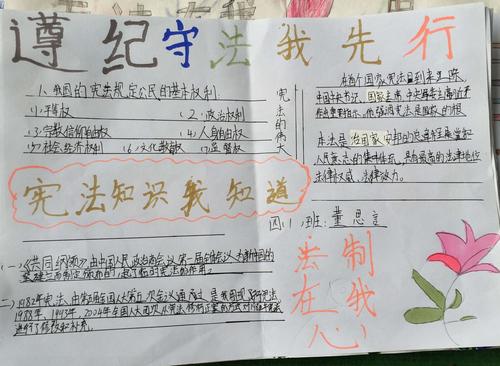 遵纪守法我先行
1、我国的宪法规定公民的基本权利
(1)平等权 (2)政治权利
(3)宗教信仰自由权 (4)人身自由权
(5)社会经济权利 (6)文化教育权 (7)监督权
宪法的伟大
在每个国家宪法日到来之际
中国中央书记、国家主席、中央军委主席习近平
作出重要指示，他强调宪法是国家的根
本法是治国安邦的
人民意志的集中体现，具有最高的法律地位
法律权威、法律效力。
宪法知识我知道
四(1)班：董思言
(一)《共同纲领》由中国人民政治协商会议第一届全体会议
(二)1982年宪法，由第五届全国人大第五次会议通过是我国现行宪法
1988年、1993年、2004年全国人大
进行了修改和补充。
法制
在我
心